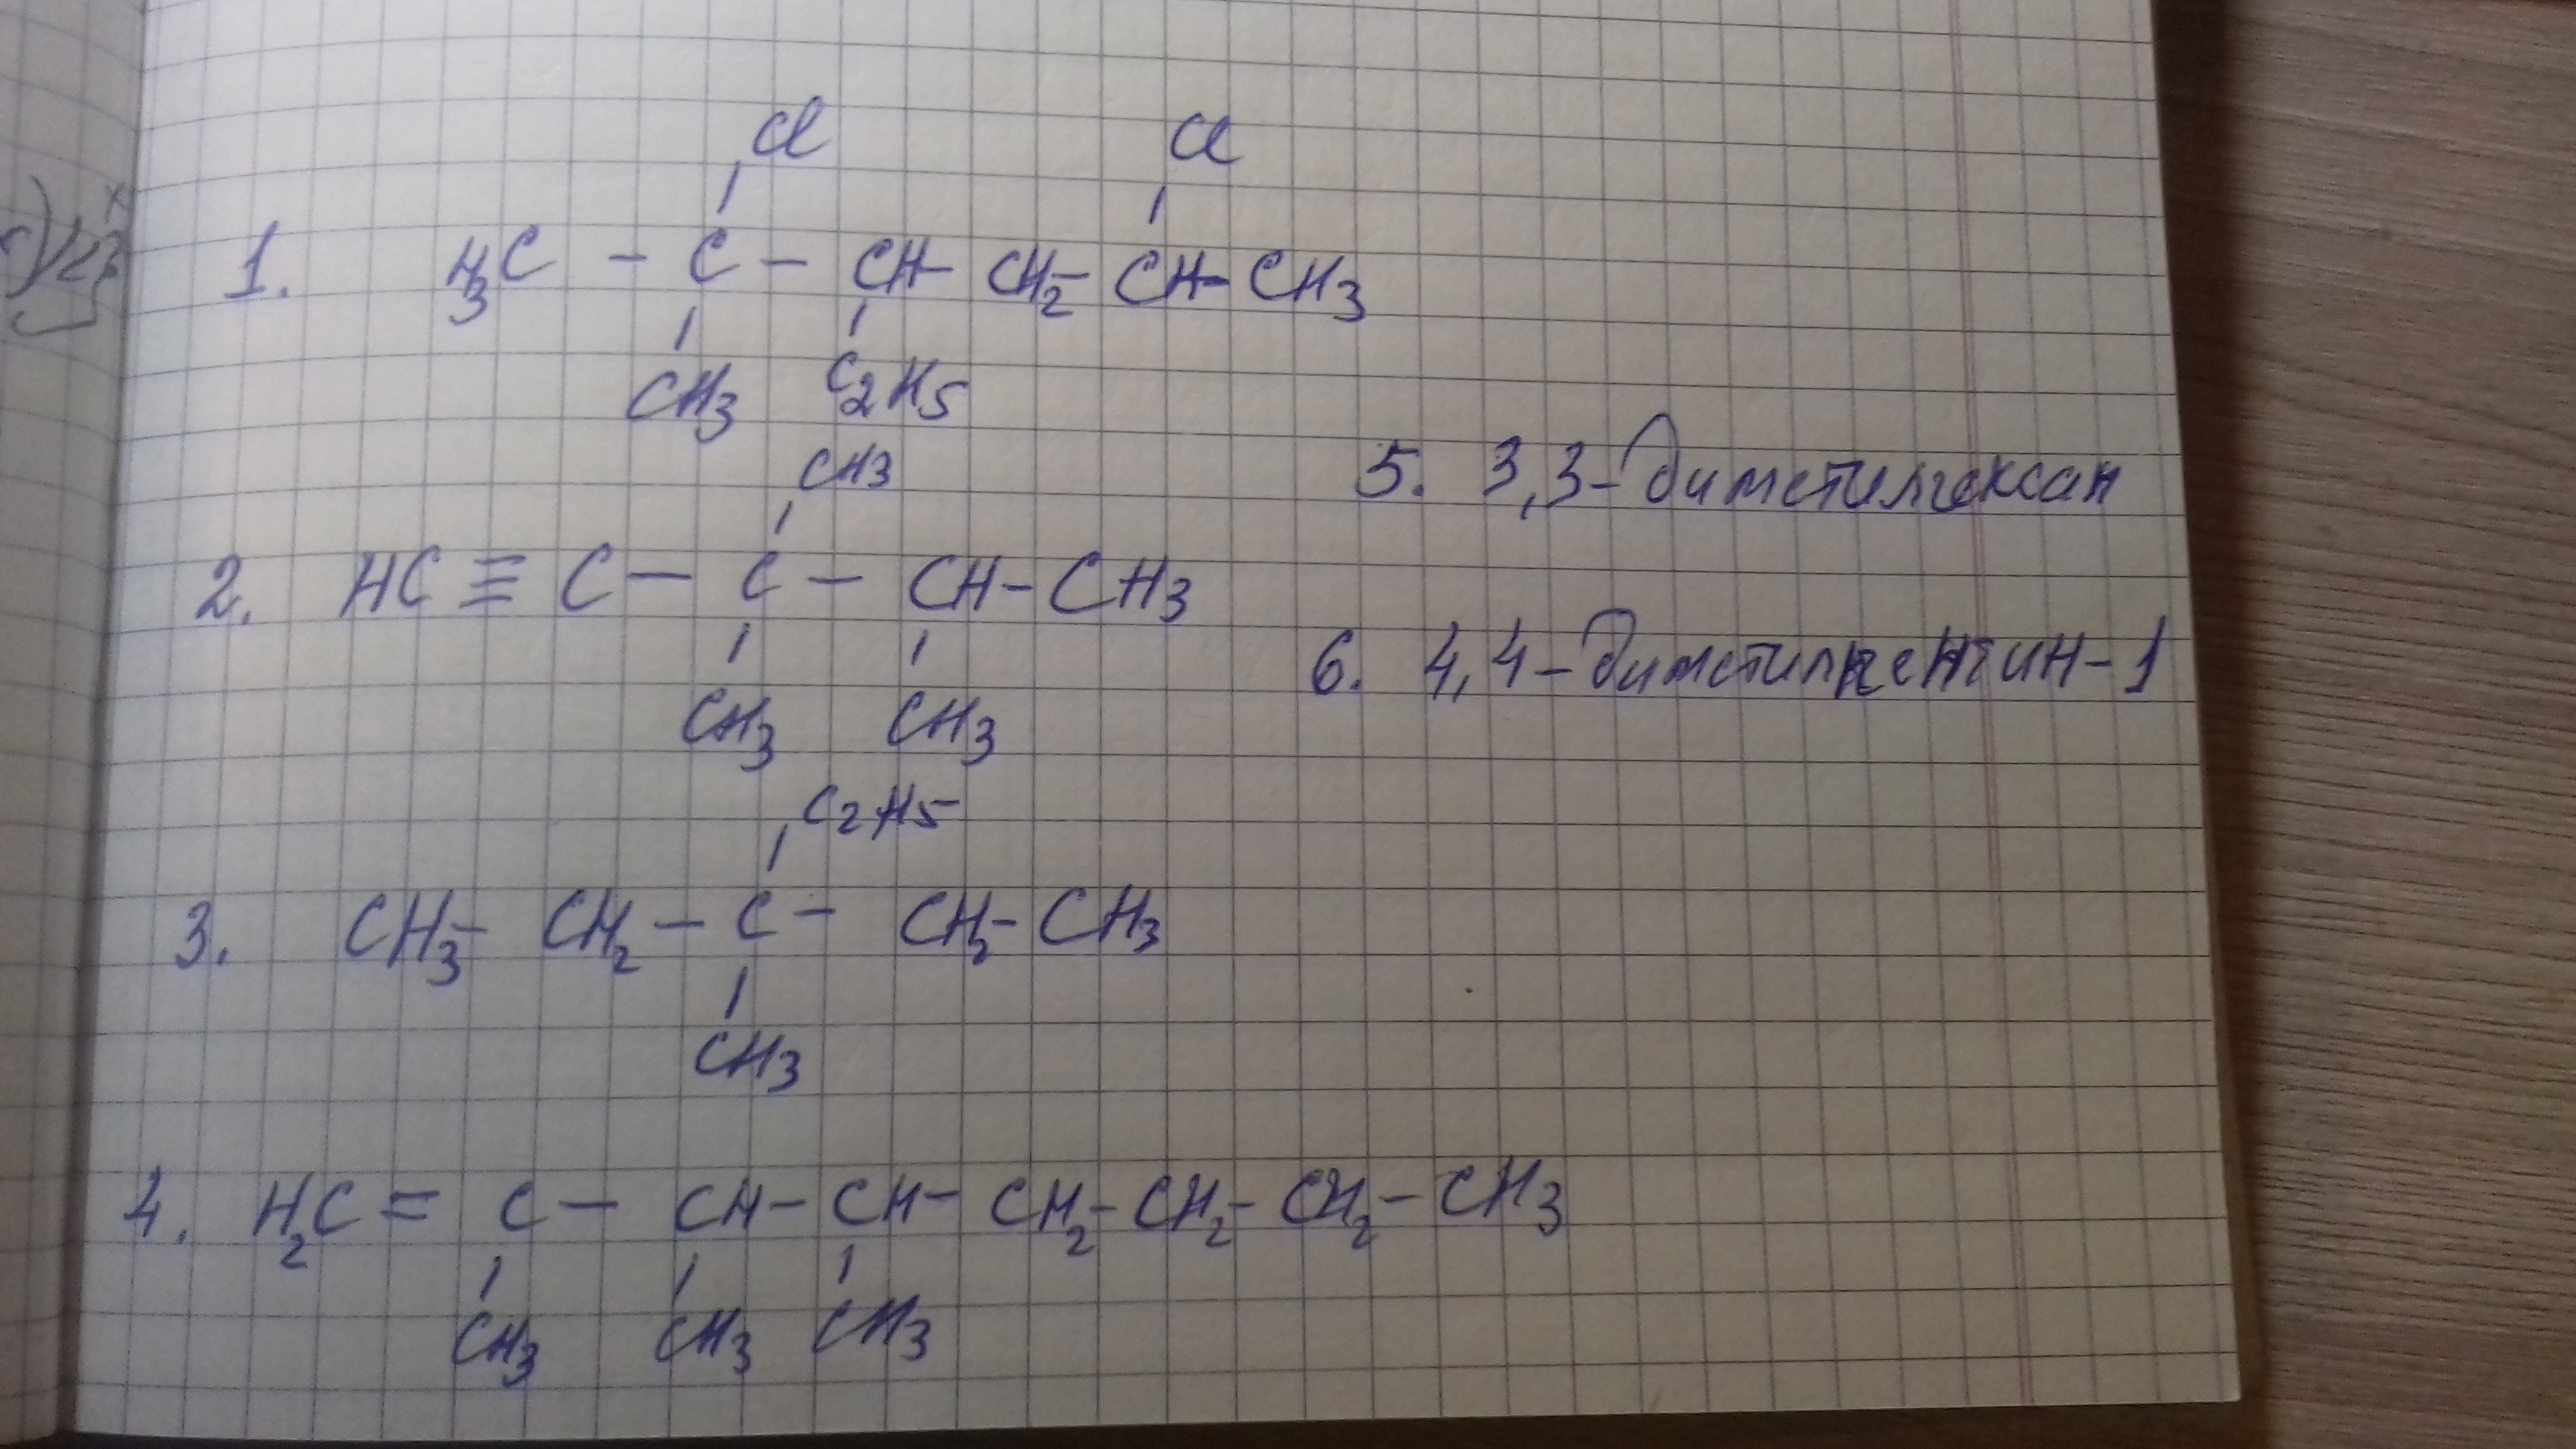 Cl Cl
1. H₃C – C – CH – CH₂ – CH – CH₃
CH₃ C₂H₅
CH₃
2. HC ≡ C – C – CH – CH₃
CH₃ CH₃
C₂H₅
3. CH₃ – CH₂ – C – CH₂ – CH₃
CH₃
4. H₂C = C – CH – CH – CH₂ – CH₂ – CH₂ – CH₃
CH₃ CH₃ CH₃
5. 3,3-диметилгексан
6. 4,4-диметилпентин-1